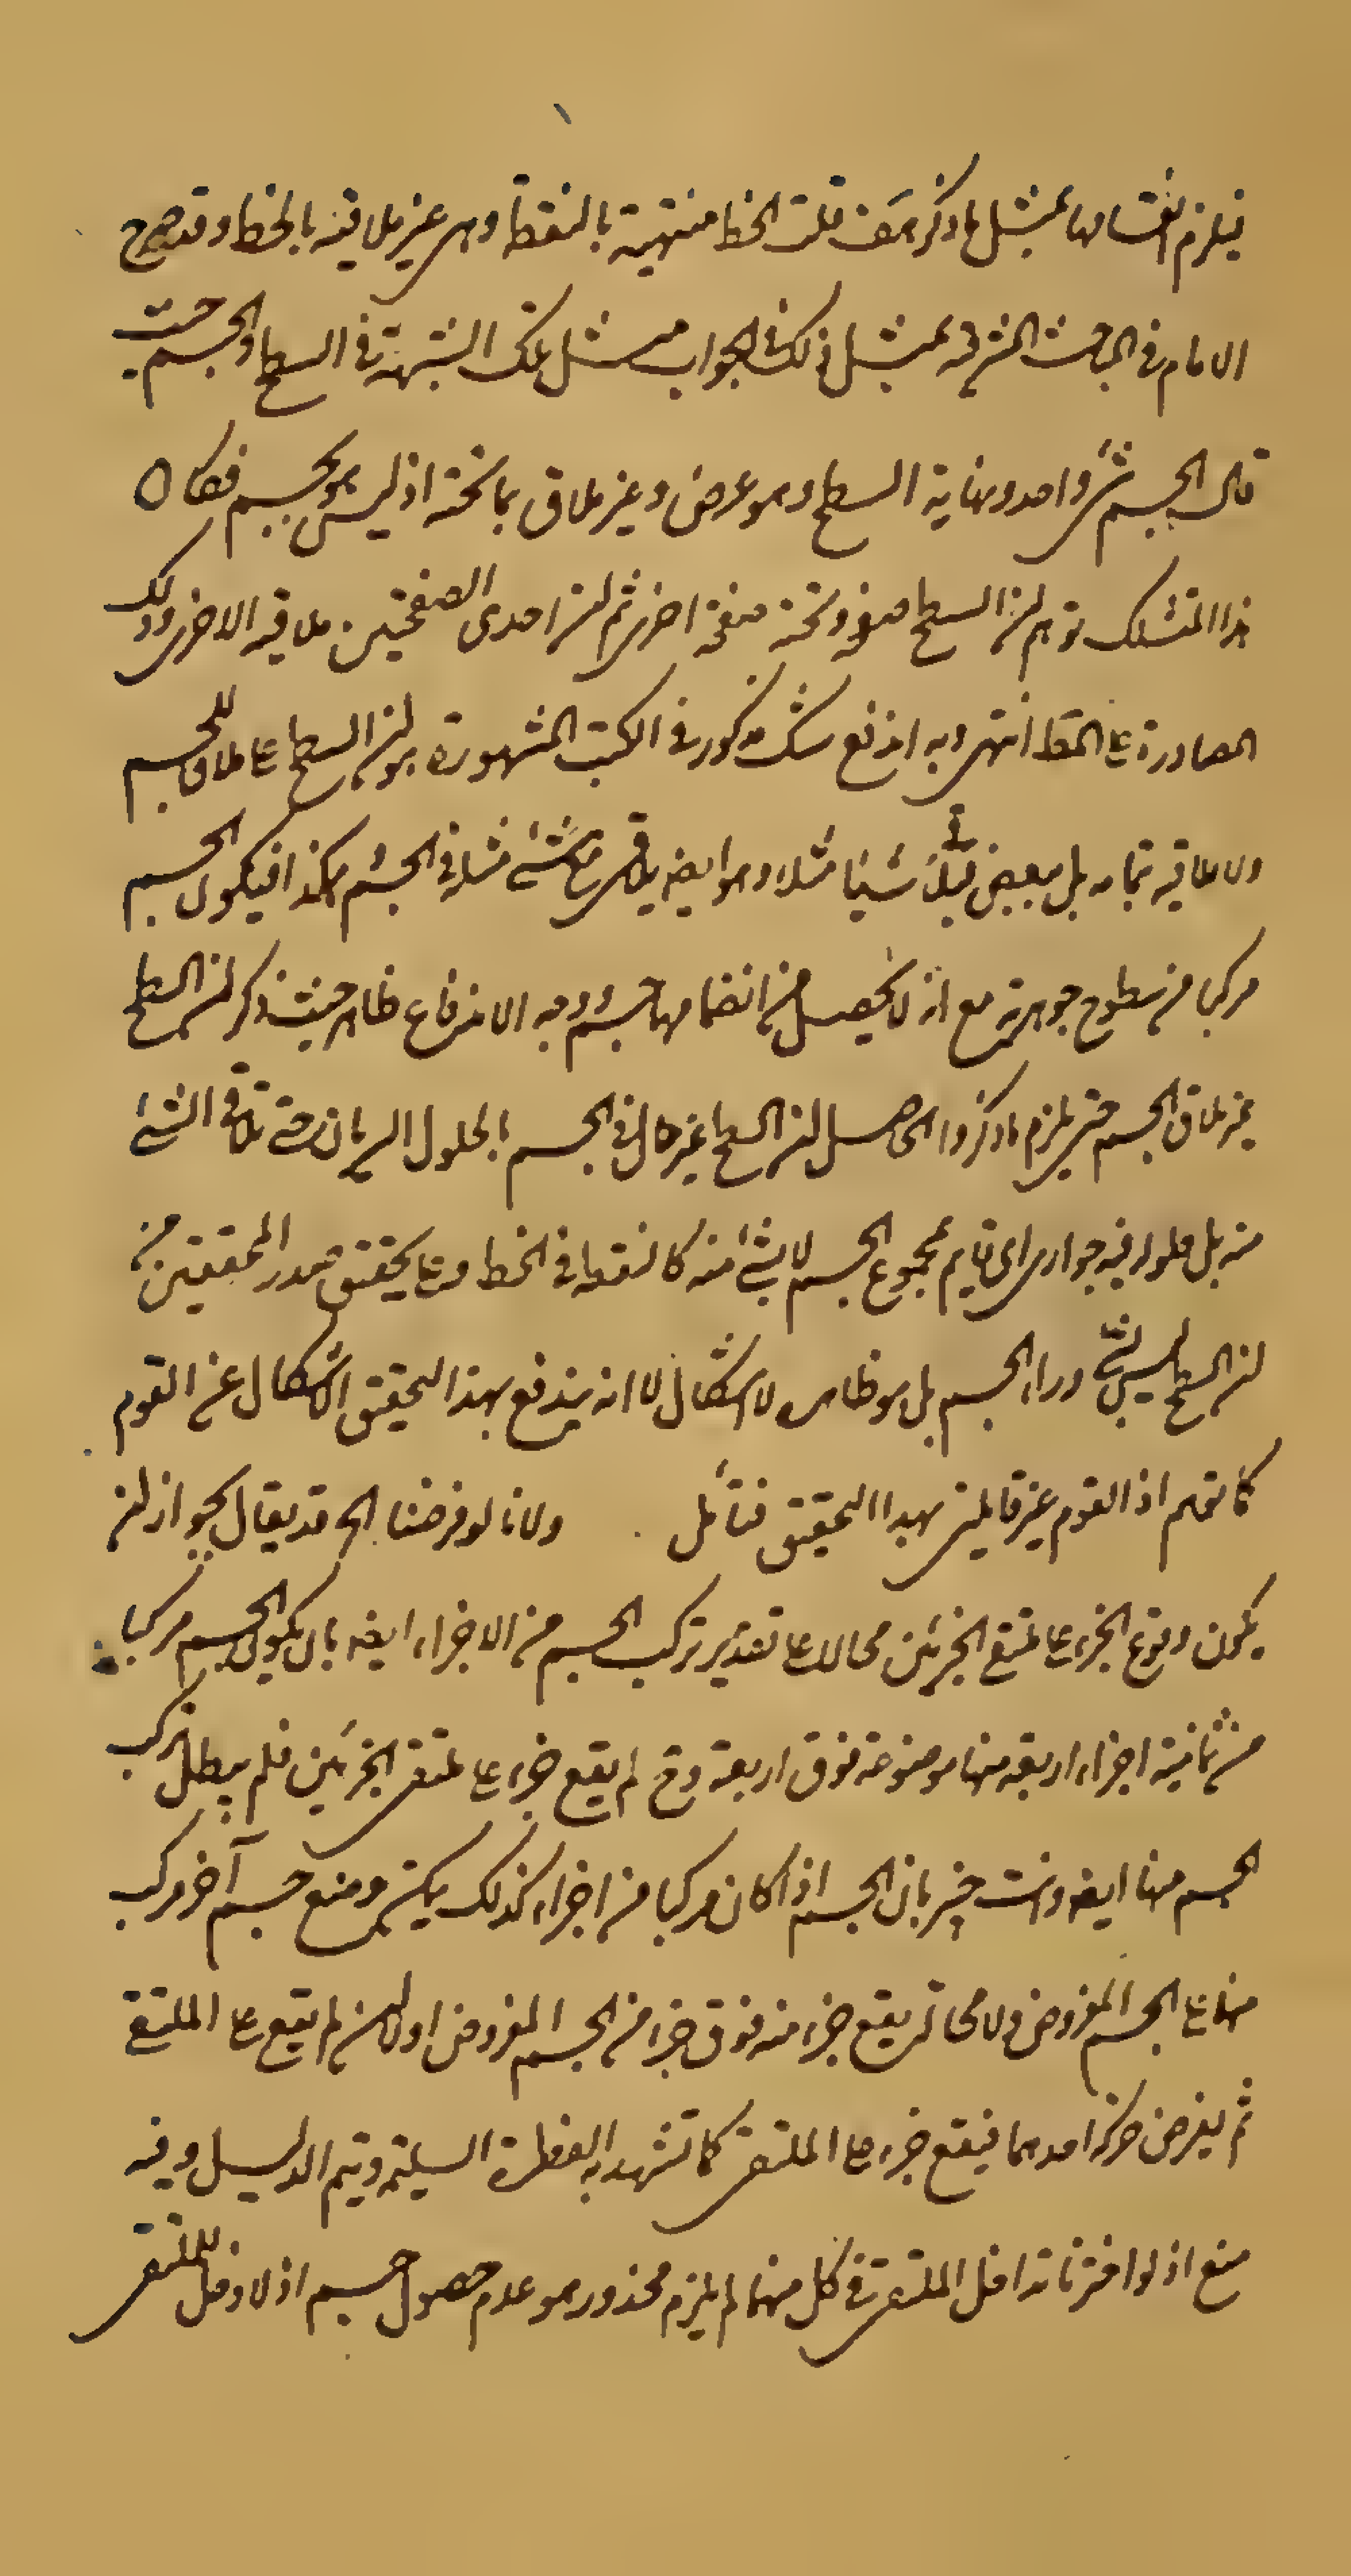 فيلزم انقسامها بمثل ما ذكرتم قلت الخط منتهية بالنقطة وهى غير ملاقية بالخط وقد صرح
الامام فى المباحث المشرقية بمثل ذلك فى الجواب مثل تلك الشبهة فى السطح والجسم حيث
قال الجسم شئ واحد ونهاية السطح وهو عرض وغير ملاق بما تحته اذ ليس هو بجسم فكان
هذا المتشكك توهم ان السطح صفحة وتحته صفحة اخرى ثم ان احدى الصفحتين ملاقية الاخرى وذلك
المصادرة على المط انتهى وبه اندفع شك مذكور فى الكتب المشهورة هو ان السطح ملاق للجسم
ولا ملاقيه بتمامه بل ببعض شيئا مثلا وهو ايضا يلاقى شئ مثله فى الجسم هكذا فيكون الجسم
مركبا من سطوح جوهرية مع انه لا يحصل من انضمامها جسم ووجه الاندفاع ظاهر حيث ذكر ان السطح
غير ملاق الجسم حتى يلزم ما ذكروا الحاصل ان السطح غير حال فى الجسم بالحلول السريانى حتى يلاقى الشئ
منه بل حلوله فيه جوارى اى قايم بمجموع الجسم لا بشئ منه كالنقطة فى الخط وعلى تحقيق صدر المحققين من
ان السطح ليس بشئ وراء الجسم بل هو ظاهره لا اشكال لا انه يندفع بهذا التحقيق الاشكال عن القوم
كما توهم اذ القوم غير قايلين بهذا التحقيق فتأمل ولانا لو فرضنا الخ قد يقال يجوز ان
يكون وقوع الجزء على ملتقى الجزئين محالا على تقدير تركب الجسم من الاجزاء ايضا بان يكون الجسم مركبا
من ثمانية اجزاء اربعة منها موضوعة فوق اربعة وح لم يقع جزء على ملتقى الجزئين فلم يبطل تركب
الجسم منها ايضا وانت خبير بان الجسم اذا كان مركبا من اجزاء كذلك يمكن وضع جسم آخر مركب
منها على الجسم المفروض ولا محالة يقع جزء منه فوق جزء من الجسم المفروض اولا ان لم يقع على الملتقى
ثم يفرض حركة احدهما فيقع جزء على الملتقى كما تشهد به الفطرة السليمة ويتم الدليل وفيه
منع اذ لو اخترنا تداخل الملتقى فى كل منهما لم يلزم محذور هو عدم حصول جسم اذ لا دخل للملتقى